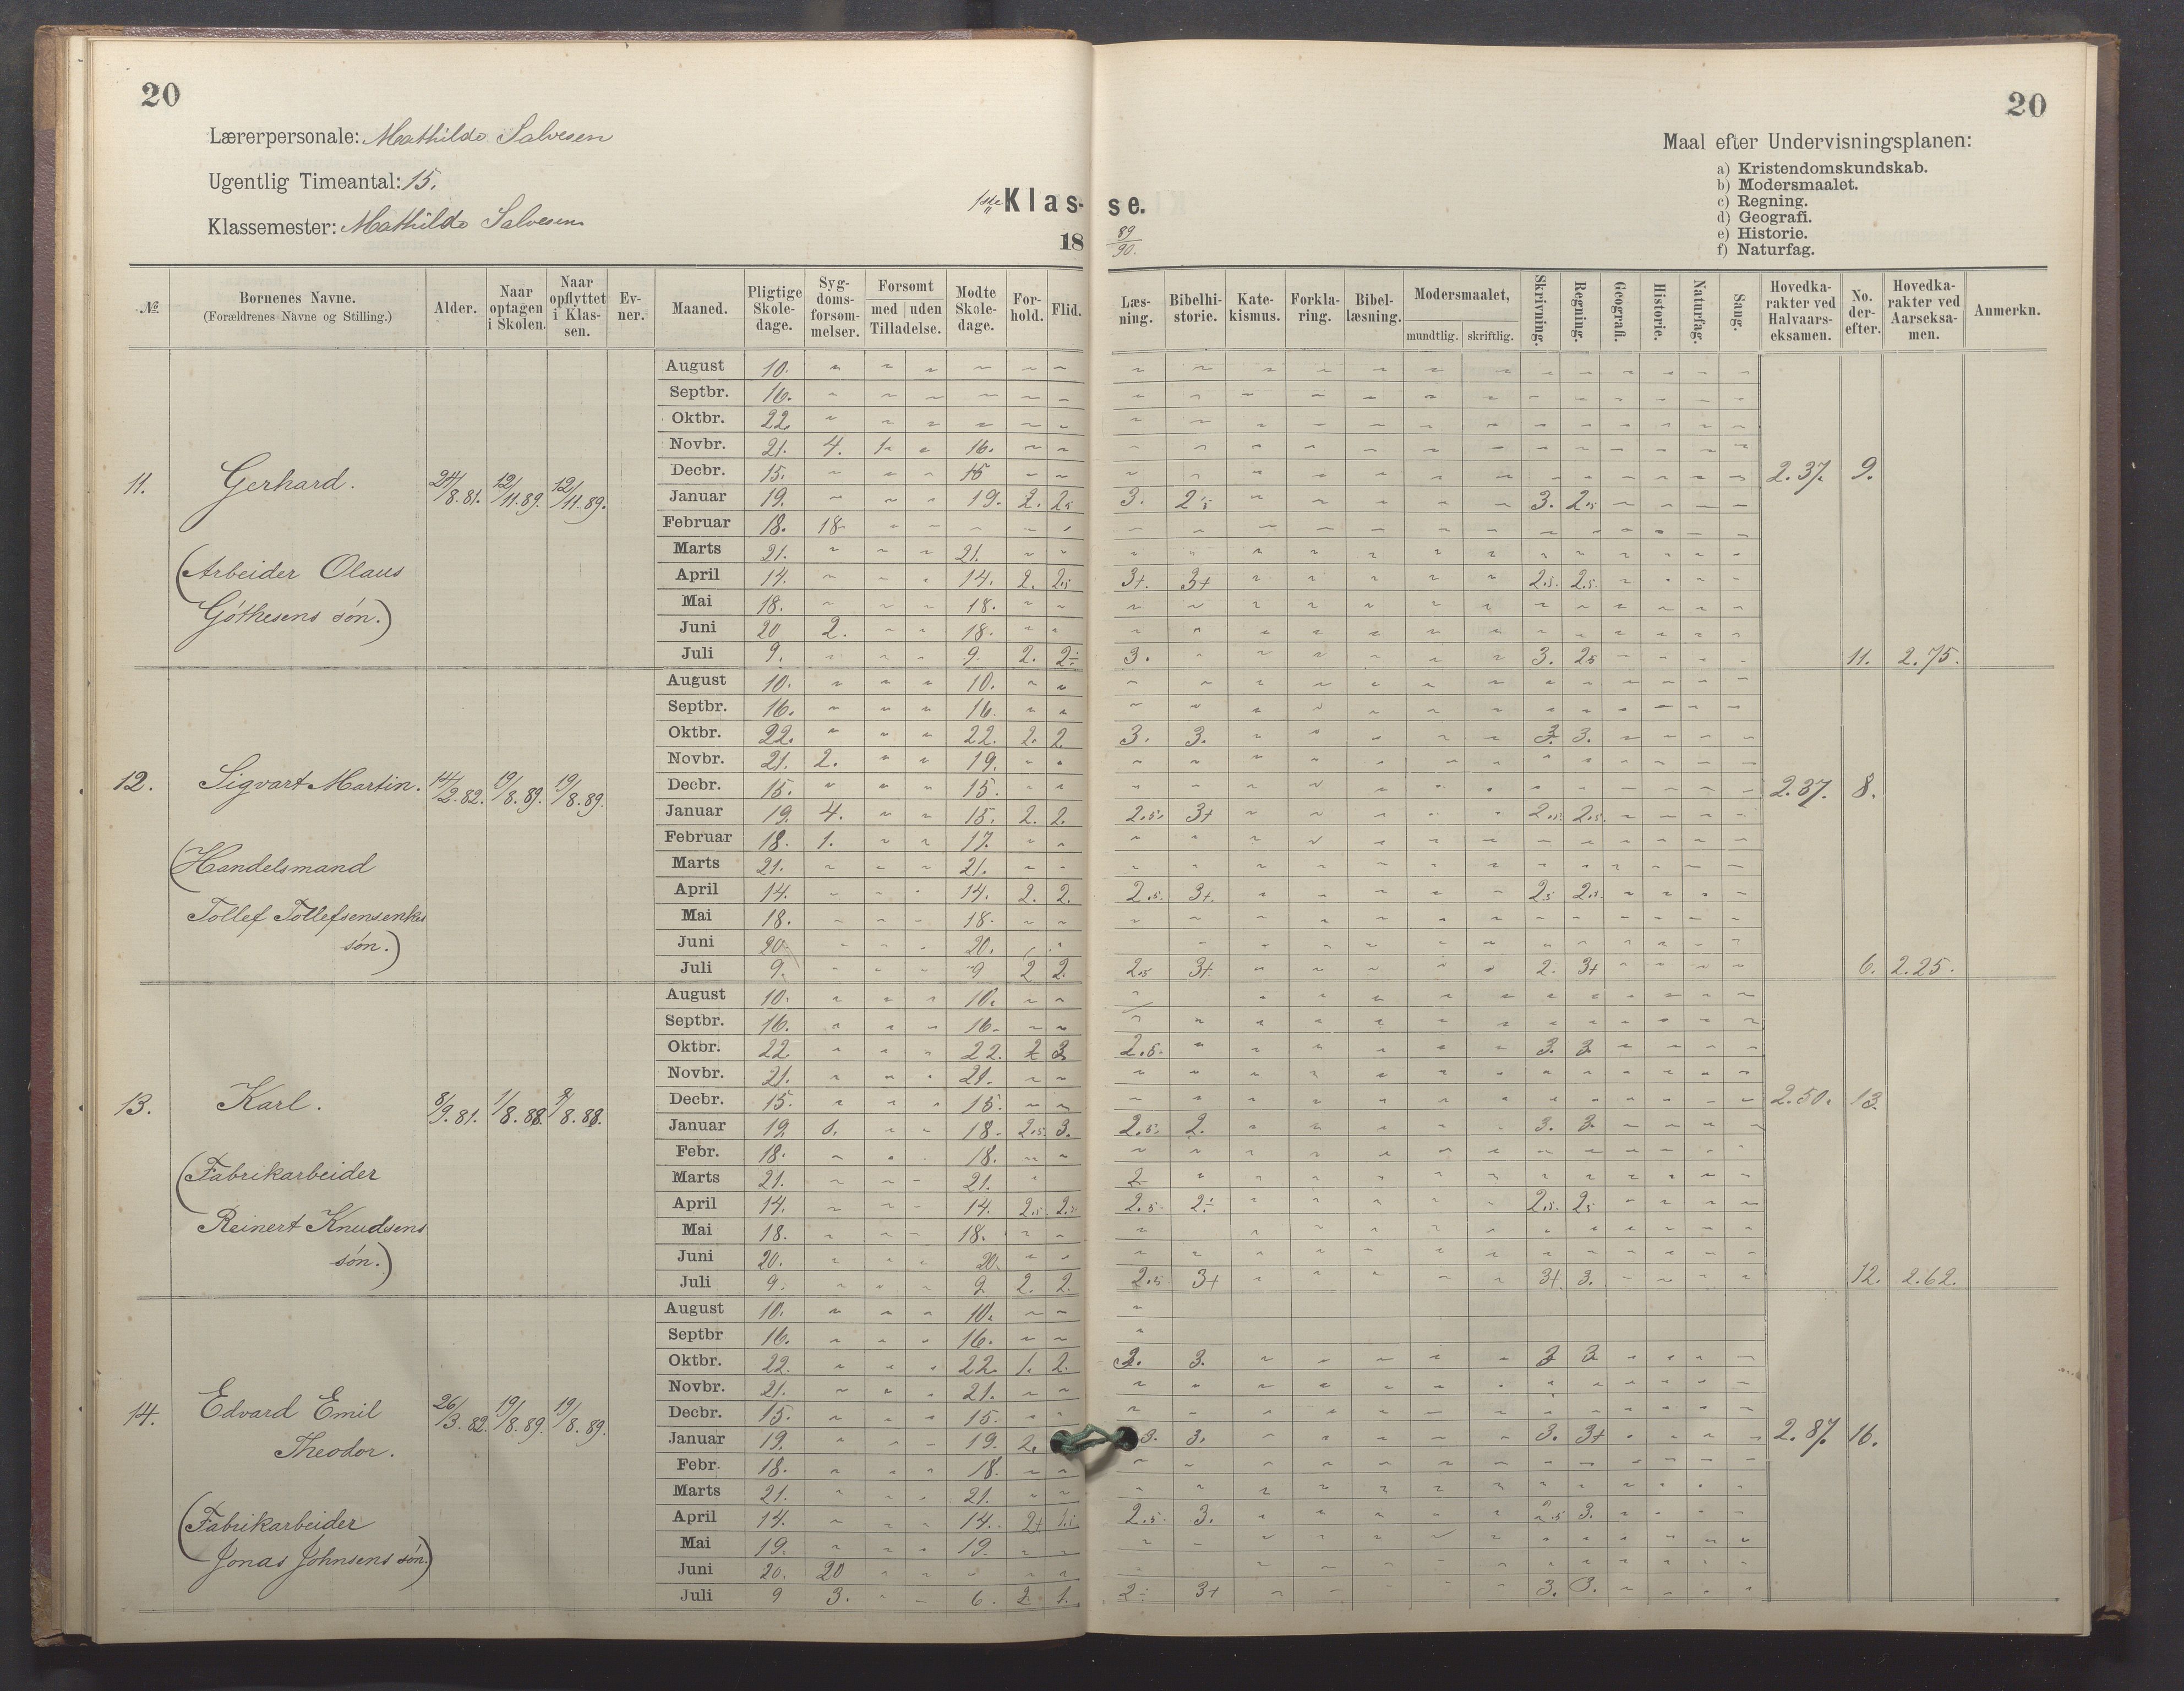 20
20
Lærerpersonale: Mathilde Salvesen
Ugentlig Timeantal: 15.
Klassemester: Mathilde Salvesen
1ste Klas-
se.
18
89/90.
Maal efter Undervisningsplanen:
a) Kristendomskundskab.
b) Modersmaalet.
c) Regning.
d) Geografi.
e) Historie.
f) Naturfag.
№ Børnenes Navne. (Forældrenes Navne og Stilling.) Alder. Naar optagen i Skolen. Naar opflyttet i Klassen. Ev-ner. Maaned. Pligtige Skole-dage. Syg-doms-forsøm-melser. Forsømt med uden Tilladelse. Mødte Skole-dage. For-hold. Flid. Læs-ning. Bibelhi-storie. Kate-kismus. Forkla-ring. Bibel-læsning. Modersmaalet, mundtlig. skriftlig. Skrivning. Regning. Geografi. Historie. Naturfag. Sang. Hovedka-rakter ved Halvaars-eksamen. No. der-efter. Hovedka-rakter ved Aarseksa-men. Anmerkn.
August 10.
Septbr. 16.
Oktbr. 22
Novbr. 21. 4. 1 16.
Decbr. 15. 15
11. Gerhard. 24/8.81. 12/11.89. 12/11.89. 2.37. 9.
Januar 19. 19. 2. 2.5 3. 2.5 3. 2.5
Februar 18. 18
Marts 21. 21.
(Arbeider Olaus
April 14. 14. 2. 2.5 3+. 3+ 2.5. 2.5.
Mai 18. 18.
Gøthesens søn.)
Juni 20 2. 18.
Juli 9. 9. 2. 2÷ 3. 3. 2.5 11. 2.75.
August 10. 10.
Septbr. 16. 16.
Oktbr. 22. 22. 2. 2. 3. 3. 3. 3.
Novbr. 21. 2. 19.
12. Sigvart Martin. 14/2.82. 19/8.89. 19/8.89. 2.37. 8.
Decbr. 15. 15.
Januar 19. 4. 15. 2. 2. 2.5. 3+ 2.5. 2.5.
Februar 18. 1. 17.
(Handelsmand
Marts 21. 21.
April 14. 14. 2. 2. 2.5. 3+. 2.5 2.5.
Tollef Tollefsensenkes
Mai 18. 18.
søn.)
Juni 20. 20.
Juli 9. 9 2 2. 2.5 3+. 2. 3+ 6. 2.25.
August 10. 10.
Septbr. 16. 16.
Oktbr. 22 22. 2 3 2.5. 3. 3
Novbr. 21. 21.
13. Karl. 8/9.81. 1/8.88. /8.88. 2.50. 13.
Decbr. 15. 15.
Januar 19. 1. 18. 2.5. 3. 2.5. 2. 3. 3.
Febr. 18. 18.
(Fabrikarbeider
Marts 21. 21. 2
April 14. 14. 2.5. 2.5. 2.5. 2÷ 2.5. 2.5
Reinert Knudsens
Mai 18. 18.
søn.)
Juni 20. 20.
Juli 9. 9. 2. 2. 2.5 3+ 3+. 3. 12. 2.62.
August 10. 10.
Septbr 16. 16.
Oktbr. 22. 22. 1. 2. 2. 3. 3 3
Novbr. 21. 21.
14. Edvard Emil 26/3.82. 19/8.89. 19/8.89.
Decbr. 15. 15.
Theodor.
Januar 19. 19. 2. 3. 3. 3. 3+ 2.87. 16.
Febr. 18. 18.
Marts 21. 21.
(Fabrikarbeider
April 14. 14. 2+ 2.5. 3. 2.5 3.
Mai 19. 19.
Jonas Johnsens søn.)
Juni 20. 20
Juli 9 3. 6. 2. 1. 2÷ 3+ 3. 3.